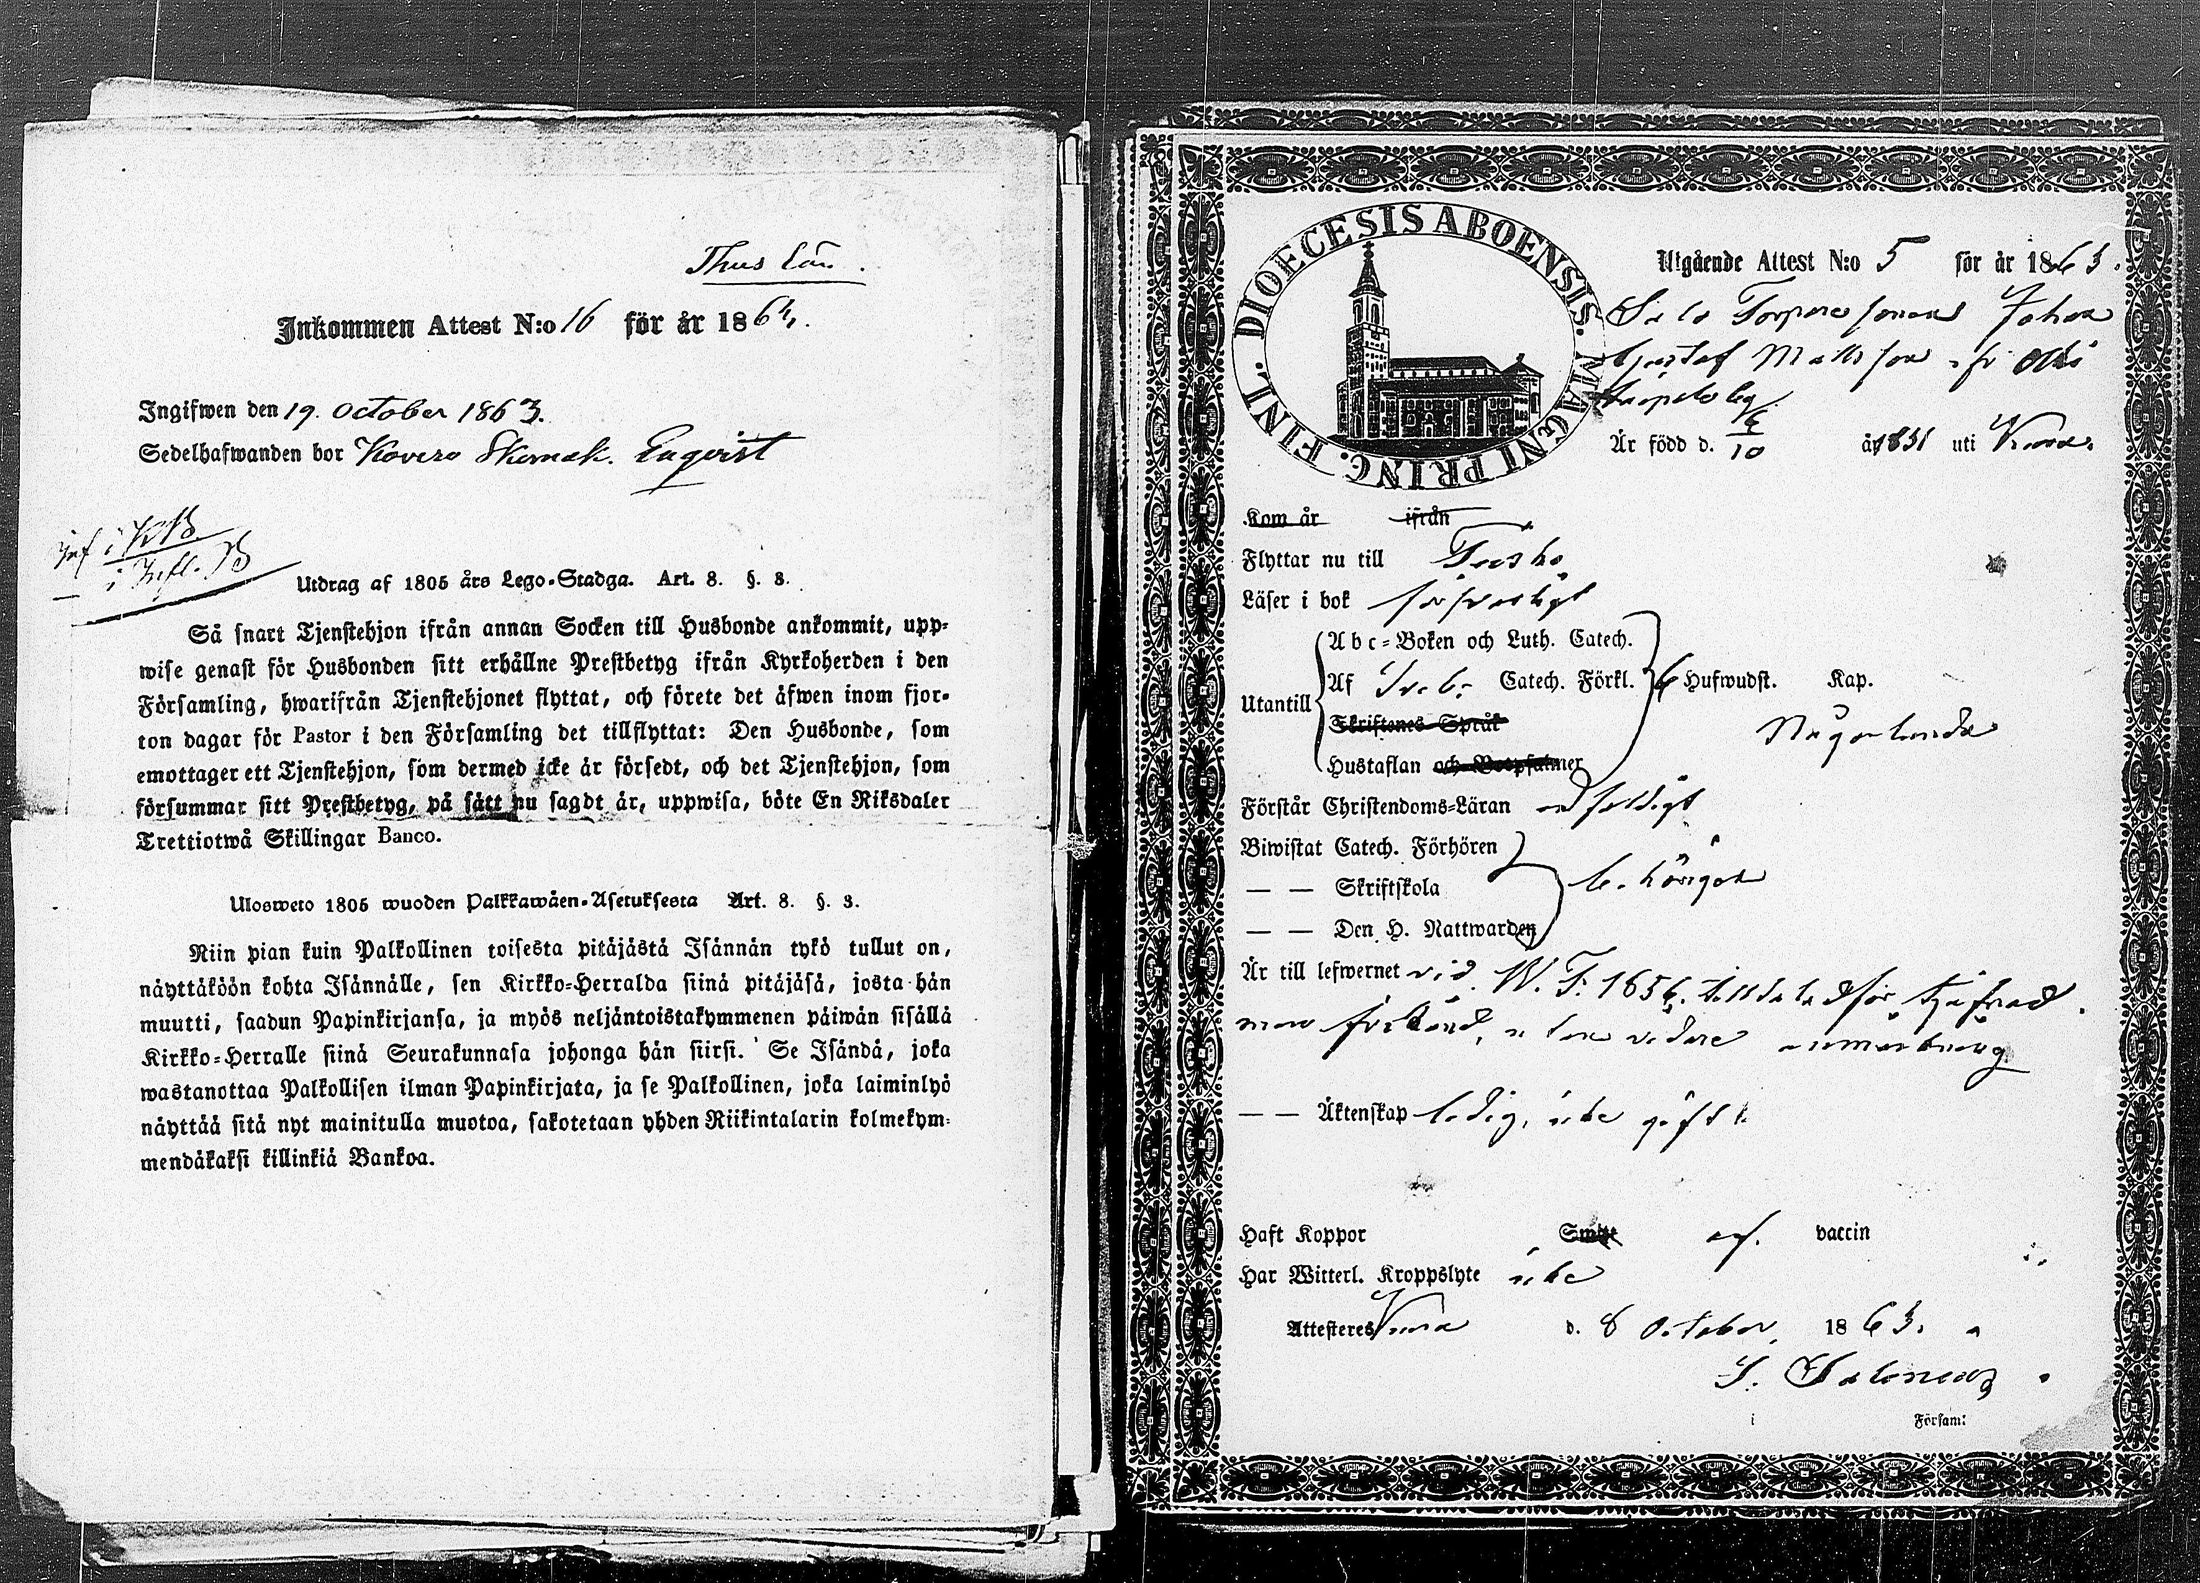 Thus län.
Inkommen Attest N:o 16 för år 1864.
Ingifwen den 19. October 1863.
Sedelhafwanden bor Kovero Skomak. Enqvist
i KB
i Infl. B
Utdrag af 1805 års Lego-Stadga. Art. 8. §. 3.
Så snart Tjenstehjon ifrån annan Socken till Husbonde ankommit, upp-
wise genast för Husbonden sitt erhållne Prestbetyg ifrån Kyrkoherden i den
Församling, hwarifrån Tjenstehjonet flyttat, och förete det äfwen inom fjor-
ton dagar för Pastor i den Församling det tillflyttat: Den Husbonde, som
emottager ett Tjenstehjon, som dermed icke är försedt, och det Tjenstehjon, som
försummar sitt Prestbetyg, på sätt nu sagdt är, uppwisa, böte En Riksdaler
Trettiotwå Skillingar Banco.
Ulosweto 1805 wuoden Palkkawäen-Asetuksesta Art. 8. §. 3.
Niin pian kuin Palkollinen toisesta pitäjästä Isännän tykö tullut on,
näyttäköön kohta Isännälle, sen Kirkko-Herralda siinä pitäjäsä, josta hän
muutti, saadun Papinkirjansa, ja myös neljäntoistakymmenen päiwän sisällä
Kirkko-Herralle siinä Seurakunnasa johonga hän siirsi. Se Isändä, joka
wastanottaa Palkollisen ilman Papinkirjata, ja se Palkollinen, joka laiminlyö
näyttää sitä nyt mainitulla muotoa, sakotetaan yhden Riikintalarin kolmekym-
mendäkaksi killinkiä Bankoa.
DIOECESIS ABOENSIS. MAGNI PRINC. FINL.
Utgående Attest N:o 5 för år 1863.
Torpare sonen Johan
Gustaf Matts son
Är född d. 6/10 år 1831 uti
Kom år ifrån
Flyttar nu till Tusko
Läser i bok försvarligt
Abc-Boken och Luth. Catech.
Utantill Af Sveb. Catech. Förkl. 6 Hufwudst. Kap.
Skriftenes Språk
Någorlunda
Hustaflan och Botpsalmer
Förstår Christendoms-Läran enfaldigt
Biwistat Catech. Förhören
— — Skriftskola behörigen
— — Den H. Nattwarden
Är till lefwernet vid W. T. 1856. för
man utan vidare anmerkning
— — Äktenskap ledig, icke gift
Haft Koppor Smitt af vaccin
Har Witterl. Kroppslyte icke
Attesteres d. 8 October 1863.
Försam: